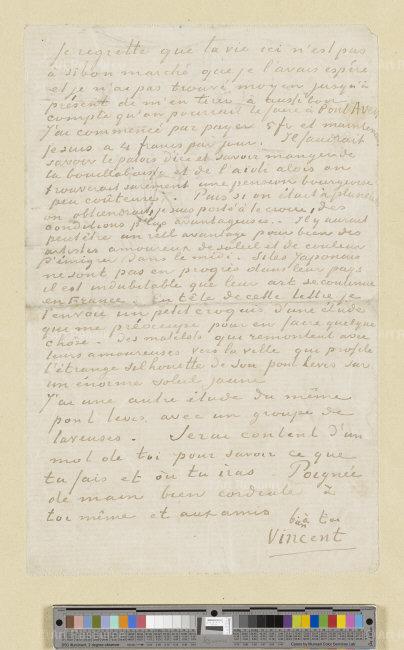 Je regrette que la vie ici n'est pas
à si bon marché que je l'avais espéré
et je n'ai pas trouvé moyen jusqu'à
présent de m'en tirer à aussi bon
compte qu'on pourrait le faire à Pont Aven
J'ai commencé par payer 5 fr et maintenant
je suis à 4 francs par jour. Il faudrait
savoir le patois d'ici et savoir manger de
la bouillabaisse et de l'aioli alors on
trouverait surement une pension bourgeoise
peu coûteuse. Puis si on était à plusieurs
on obtiendrait, je suis porté à le croire, des
conditions plus avantageuses. Il y aurait
peutêtre un réel avantage pour bien des
artistes amoureux de soleil et de couleur
d'émigrer dans le midi. Si les Japonais
ne sont pas en progrès dans leur pays
il est indubitable que leur art se continue
en France. En tête de cette lettre je
t'envoie un petit croquis d'une étude
qui me préoccupe pour en faire quelque
chose. Des matelots qui remontent avec
leurs amoureuses vers la ville qui profile
l'étrange silhouette de son pont levis sur
un énorme soleil jaune
J'ai une autre étude du même
pont levis avec un groupe de
laveuses. Serai content d'un
mot de toi pour savoir ce que
tu fais et où tu iras. Poignée
de main bien cordiale à
toi même et aux amis
bien à toi
Vincent